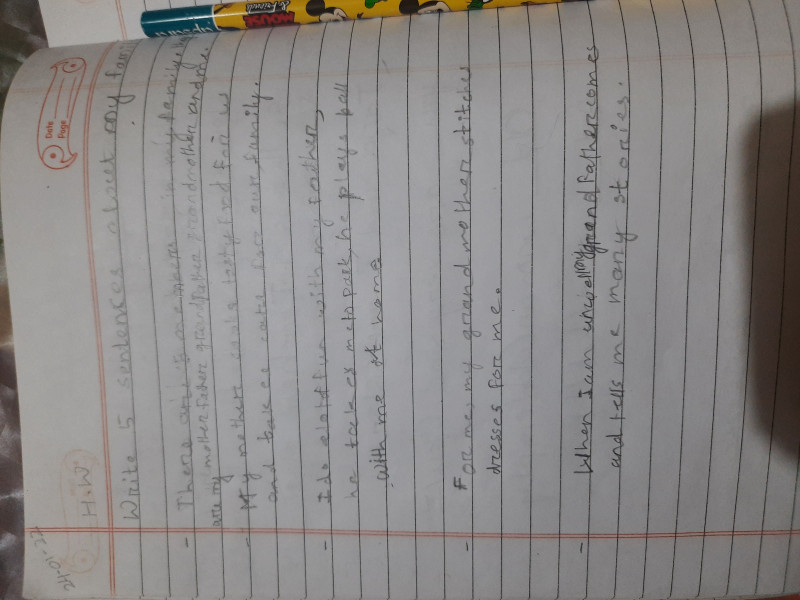 24-01-22
H.W.
Date
Page
Write 5 sentences about my family
- There are 5 members in my family
are my mother father grandfather grandmother and me.
- My mother cooks tasty food for us
and takes care for our family.
- I do alot of fun with my father,
he takes me to park, he plays ball
with me at home
- For me, my grand mother stitches
dresses for me.
- When I am unwell my grand father comes
and tells me many stories.
MOUSE
& Friends